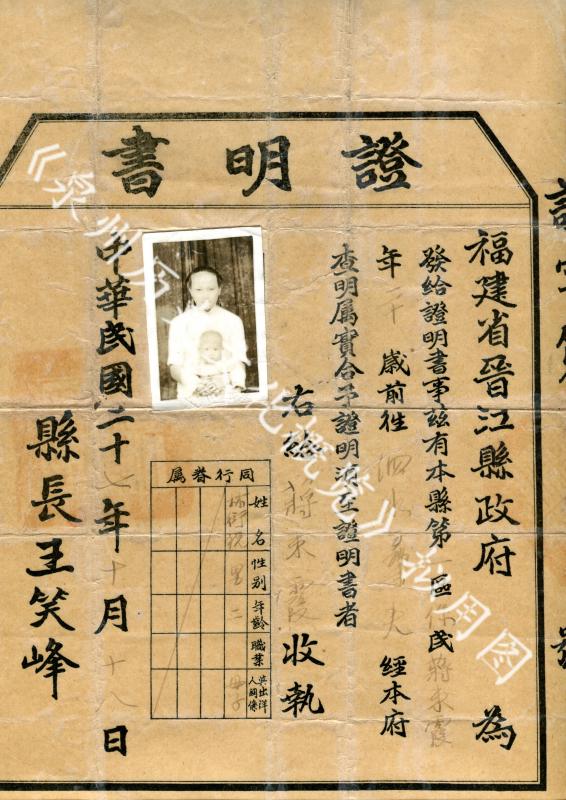 證明書
福建省晉江縣政府 為
發給證明書事茲有本縣第一區 民蔣東霞
年二十 歲前往泗水 經本府
查明屬實合予證明須至證明書者
右給 蔣東霞 收執
同行眷屬
姓名
性別
年齡
職業
與出洋人關係
男
二
母子
中華民國二十七年十月十八日
縣長王笑峰
號
《泉州 化概览》 用图